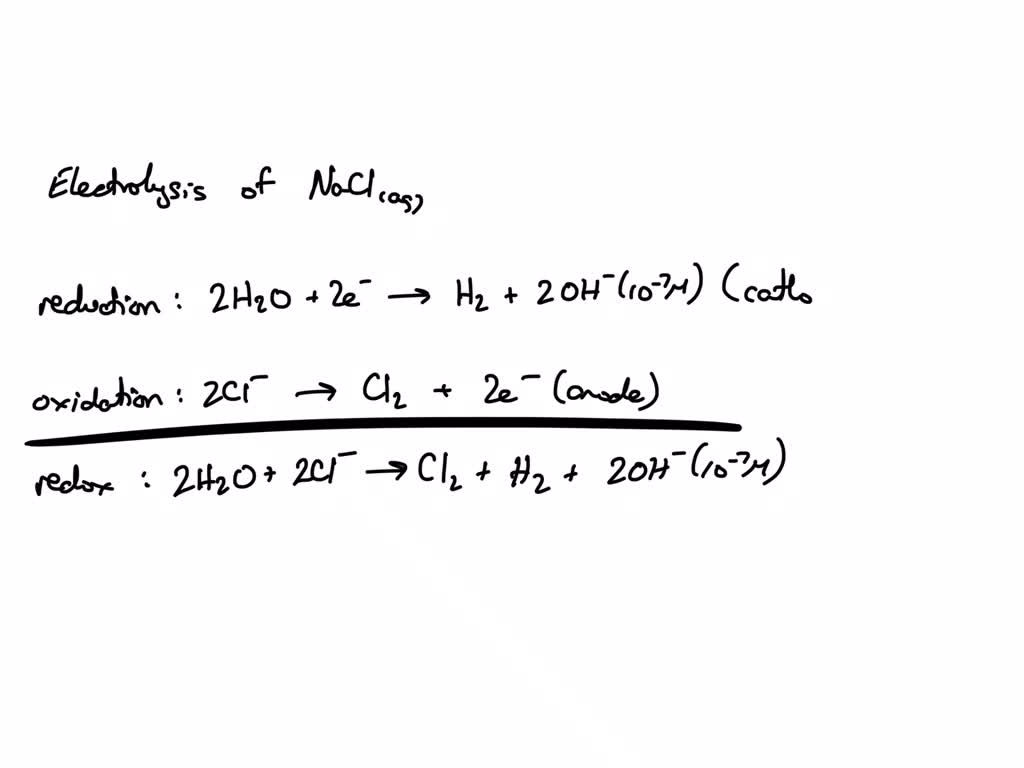 Electrolysis of NaCl(aq)
reduction : 2H₂O + 2e⁻ → H₂ + 2OH⁻(10⁻⁷M) (catho
oxidation : 2Cl⁻ → Cl₂ + 2e⁻ (anode)
redox : 2H₂O + 2Cl⁻ → Cl₂ + H₂ + 2OH⁻(10⁻⁷M)